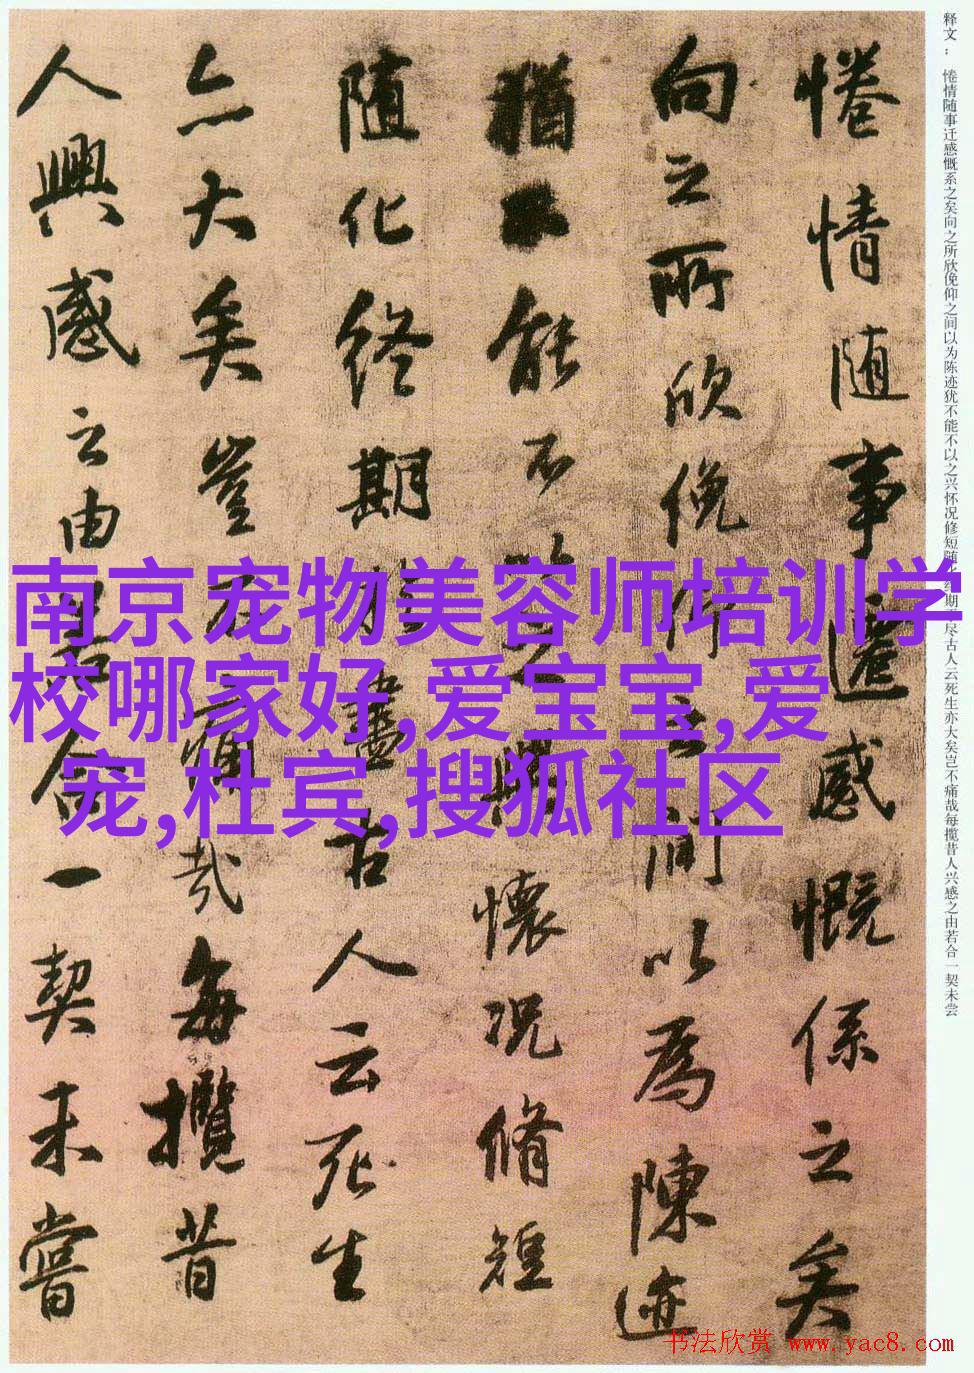 释文：惓情随事迁感慨系之矣向之所欣俛仰之间以为陈迹犹不能不以之兴怀况修短随期尽古人云死生亦大矣岂不痛哉每揽昔人兴感之由若合一契未尝
惓情随事遷感慨係之矣
向之所欣俛仰之間以為陳迹
猶不能不以之興懷况脩短
随化終期於盡古人云死生
亦大矣豈不痛哉每攬昔
人興感之由若合一契未嘗
南京宠物美容师培训学
校哪家好,爱宝宝,爱
宠,杜宾,搜狐社区
书法欣赏 www.yac8.com